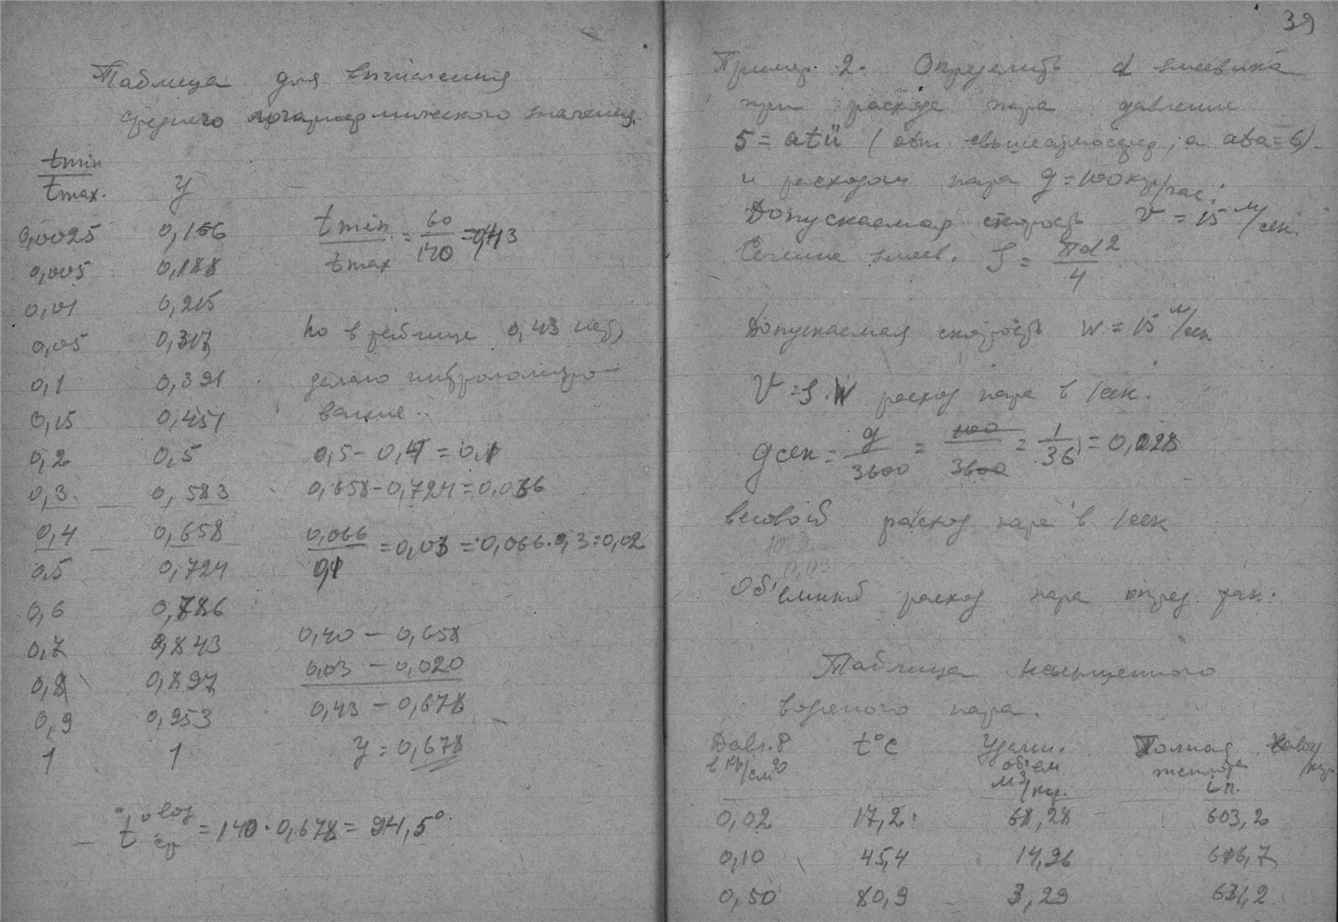 Таблица для вычисления
среднего логарифмического значения.
tmin / tmax. y
0,0025 0,166
0,005 0,188
0,01 0,215
0,05 0,317
0,1 0,391
0,15 0,451
0,2 0,5
0,3 0,583
0,4 0,658
0,5 0,724
0,6 0,786
0,7 0,843
0,8 0,897
0,9 0,953
1 1
tmin / tmax = 60 / 140 = 0,43
но в таблице 0,43 нет,
делаю
вание.
0,5 - 0,4 = 0,1
0,658 - 0,724 = 0,066
0,066 / 0,1 = 0,03 = 0,066 · 0,3 = 0,02
0,40 - 0,658
0,03 - 0,020
0,43 - 0,678
y = 0,678
t° log ср = 140 · 0,678 = 94,5°
39
Пример 2. Определить d змеевика
при расходе пара давление
5 = atü (атм. , а ata = 6).
и расходом пара g = 100 кгр/час.
Допускаемая скорость v = 15 м/сек.
Сечение змеев. S = πd² / 4
Допускаемая скорость w = 15 м/сек
V = S · W расход пара в 1 сек.
g сек = g / 3600 = 100 / 3600 = 1 / 36 = 0,028
весовой расход пара в 1 сек
Об'емный расход пара опред. так.
Таблица насыщенного
водяного пара.
Давл. P t°C Удельн. Полная
в кг/см² об'ем теплота
м³/кгр. iп.
0,02 17,2 68,28 603,2
0,10 45,4 14,96 616,7
0,50 80,9 3,29 631,2